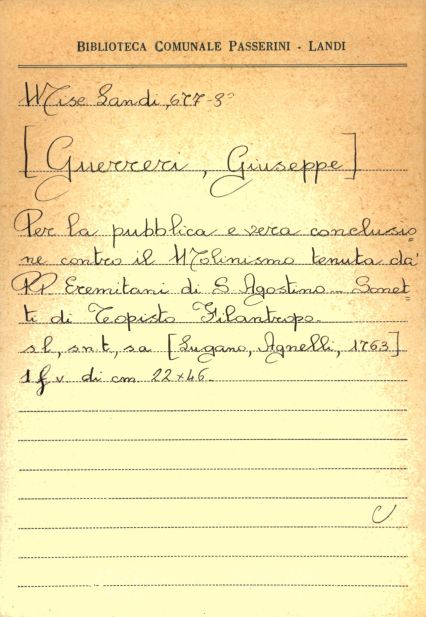 BIBLIOTECA COMUNALE PASSERINI - LANDI
Mise Landi, 677-3°
[Guerreri, Giuseppe]
Per la pubblica e vera conclusio=
ne contro il Molinismo tenuta da'
RP. Eremitani di S. Agostino - Sonet=
ti di Teopisto Filantropo.
s l, s n t, s a [Lugano, Agnelli, 1763]
1 f v. di cm 22x46.